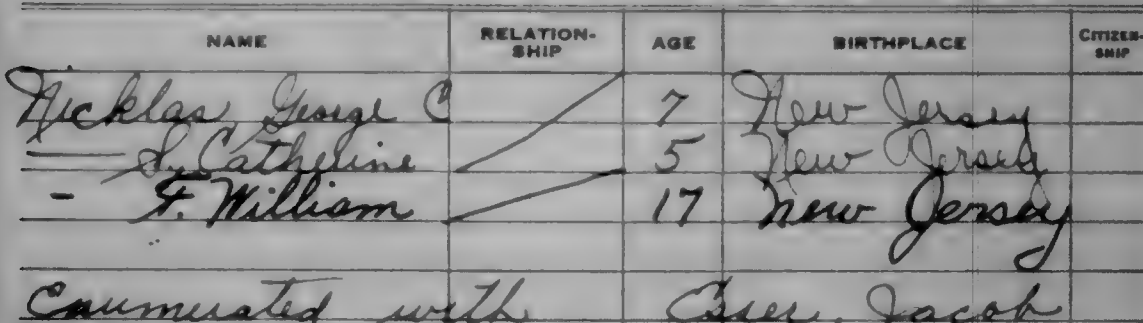 NAME RELATION-SHIP AGE BIRTHPLACE CITIZEN-SHIP
Nicklas, George C 7 New Jersey
— S. Catherine 5 New Jersey
- F. William 17 New Jersey
Enumerated with Jacob